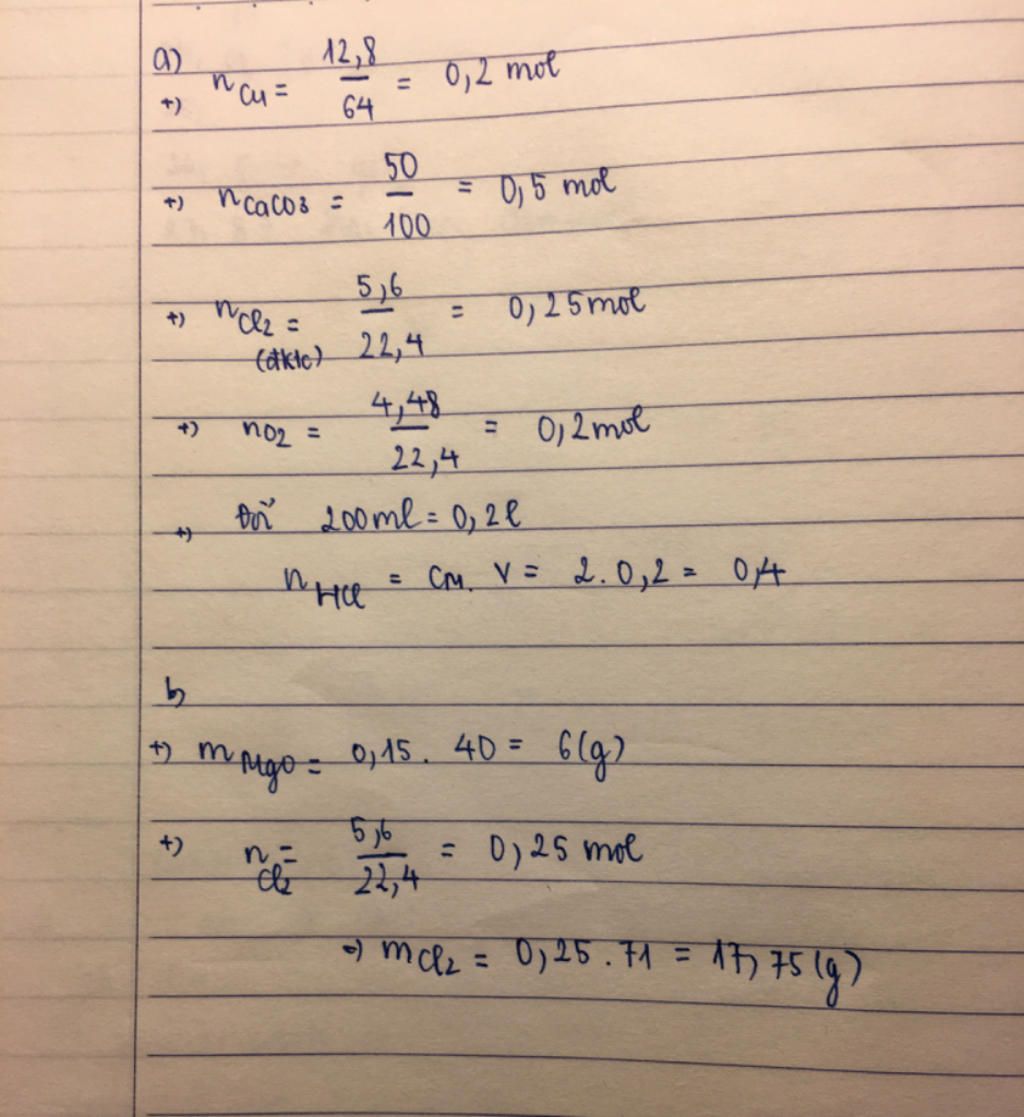 a)
+) nCu = 12,8/64 = 0,2 mol
+) nCaCO3 = 50/100 = 0,5 mol
+) nCl2 = 5,6/22,4 = 0,25 mol
(đktc)
+) nO2 = 4,48/22,4 = 0,2 mol
+) Đổi 200ml = 0,2l
nHCl = CM. V = 2. 0,2 = 0,4
b)
+) mMgO = 0,15. 40 = 6(g)
+) nCl2 = 5,6/22,4 = 0,25 mol
=> mCl2 = 0,25 . 71 = 17,75(g)